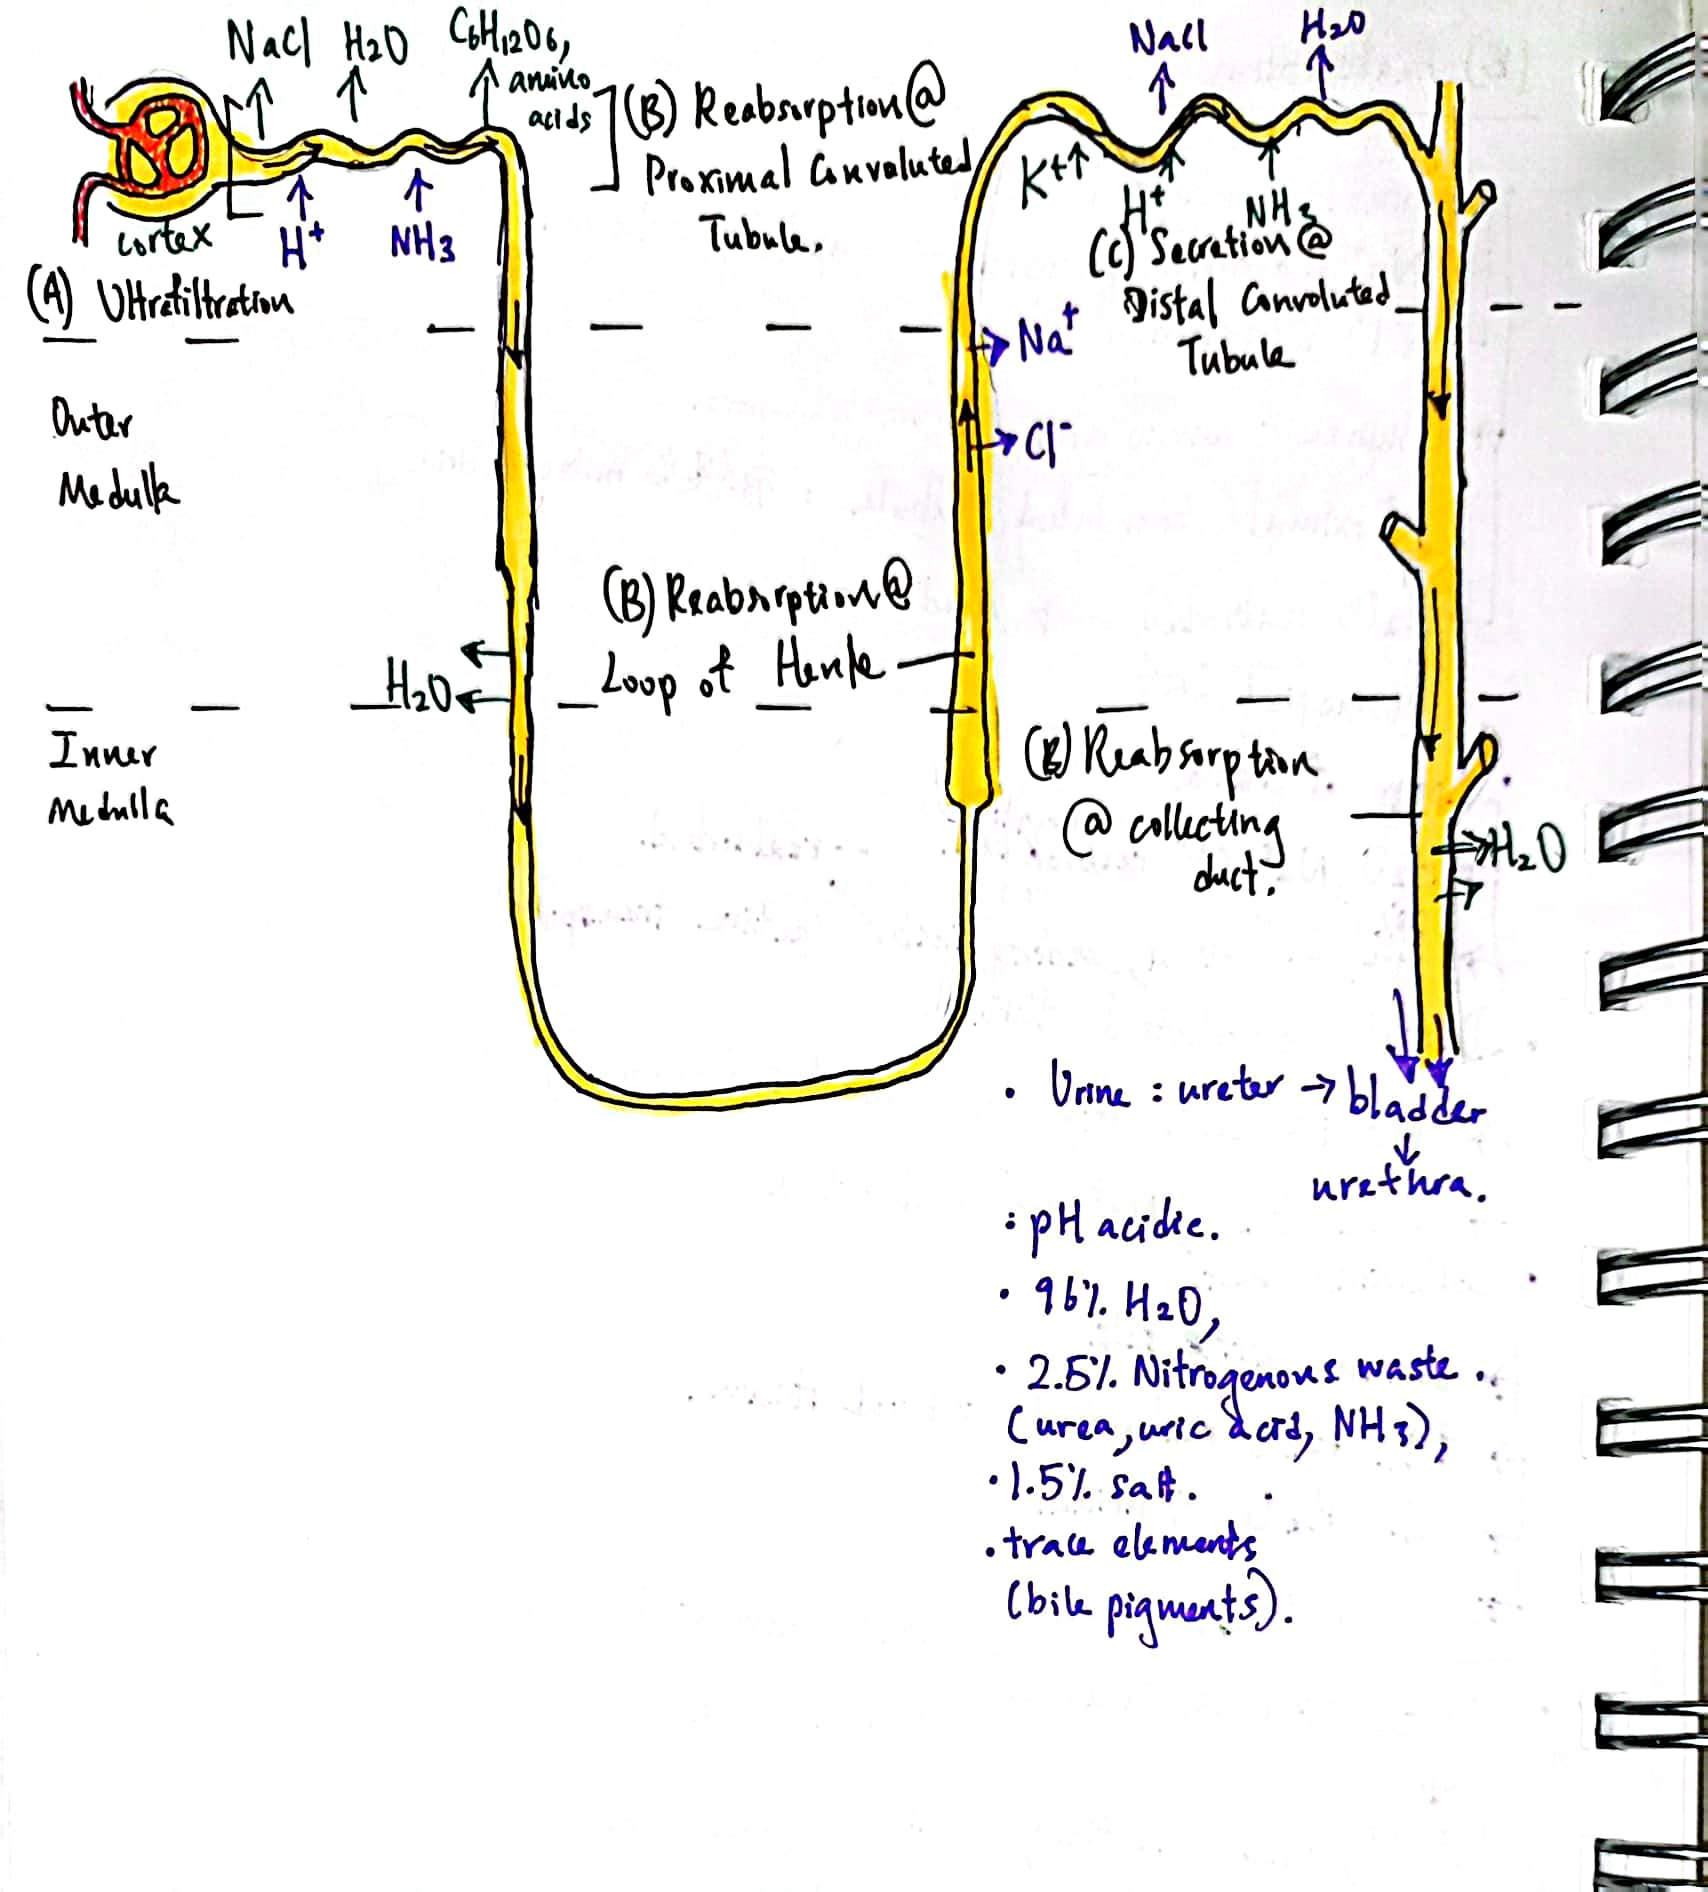 NaCl H2O C6H12O6,
amino
acids
(B) Reabsorption @
Proximal Convoluted
Tubule.
NaCl H2O
cortex
H+ NH3
(A) Ultrafiltration
K+
H+
NH3
(C) Secretion @
Distal Convoluted
Tubule
Na+
Cl-
Outer
Medulla
(B) Reabsorption @
Loop of Henle
H2O
Inner
Medulla
(B) Reabsorption
@ collecting
duct.
H2O
• Urine : ureter → bladder
↓
urethra.
: pH acidic.
• 96% H2O,
• 2.5% Nitrogenous waste.
(urea, uric acid, NH3),
• 1.5% salt.
• trace elements
(bile pigments).